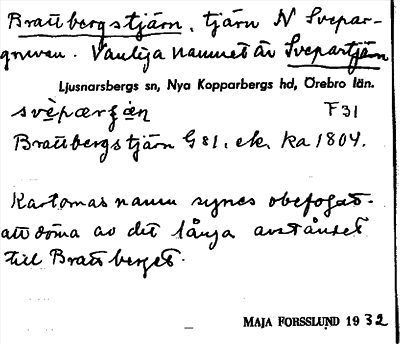 Brattbergstjärn, tjärn N Svepar-
gruvan. Vanliga namnet är Svepartjärn
Ljusnarsbergs sn, Nya Kopparbergs hd, Örebro län.
F 31
Brattbergstjärn G 81. ek. ka 1804.
Kartornas namn synes obefogat
att döma av det långa avståndet
till Brattberget.
MAJA FORSSLUND 1932